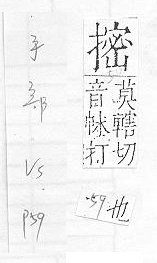 手部 VS. P59
莫轄切
音帓打
-59- 也